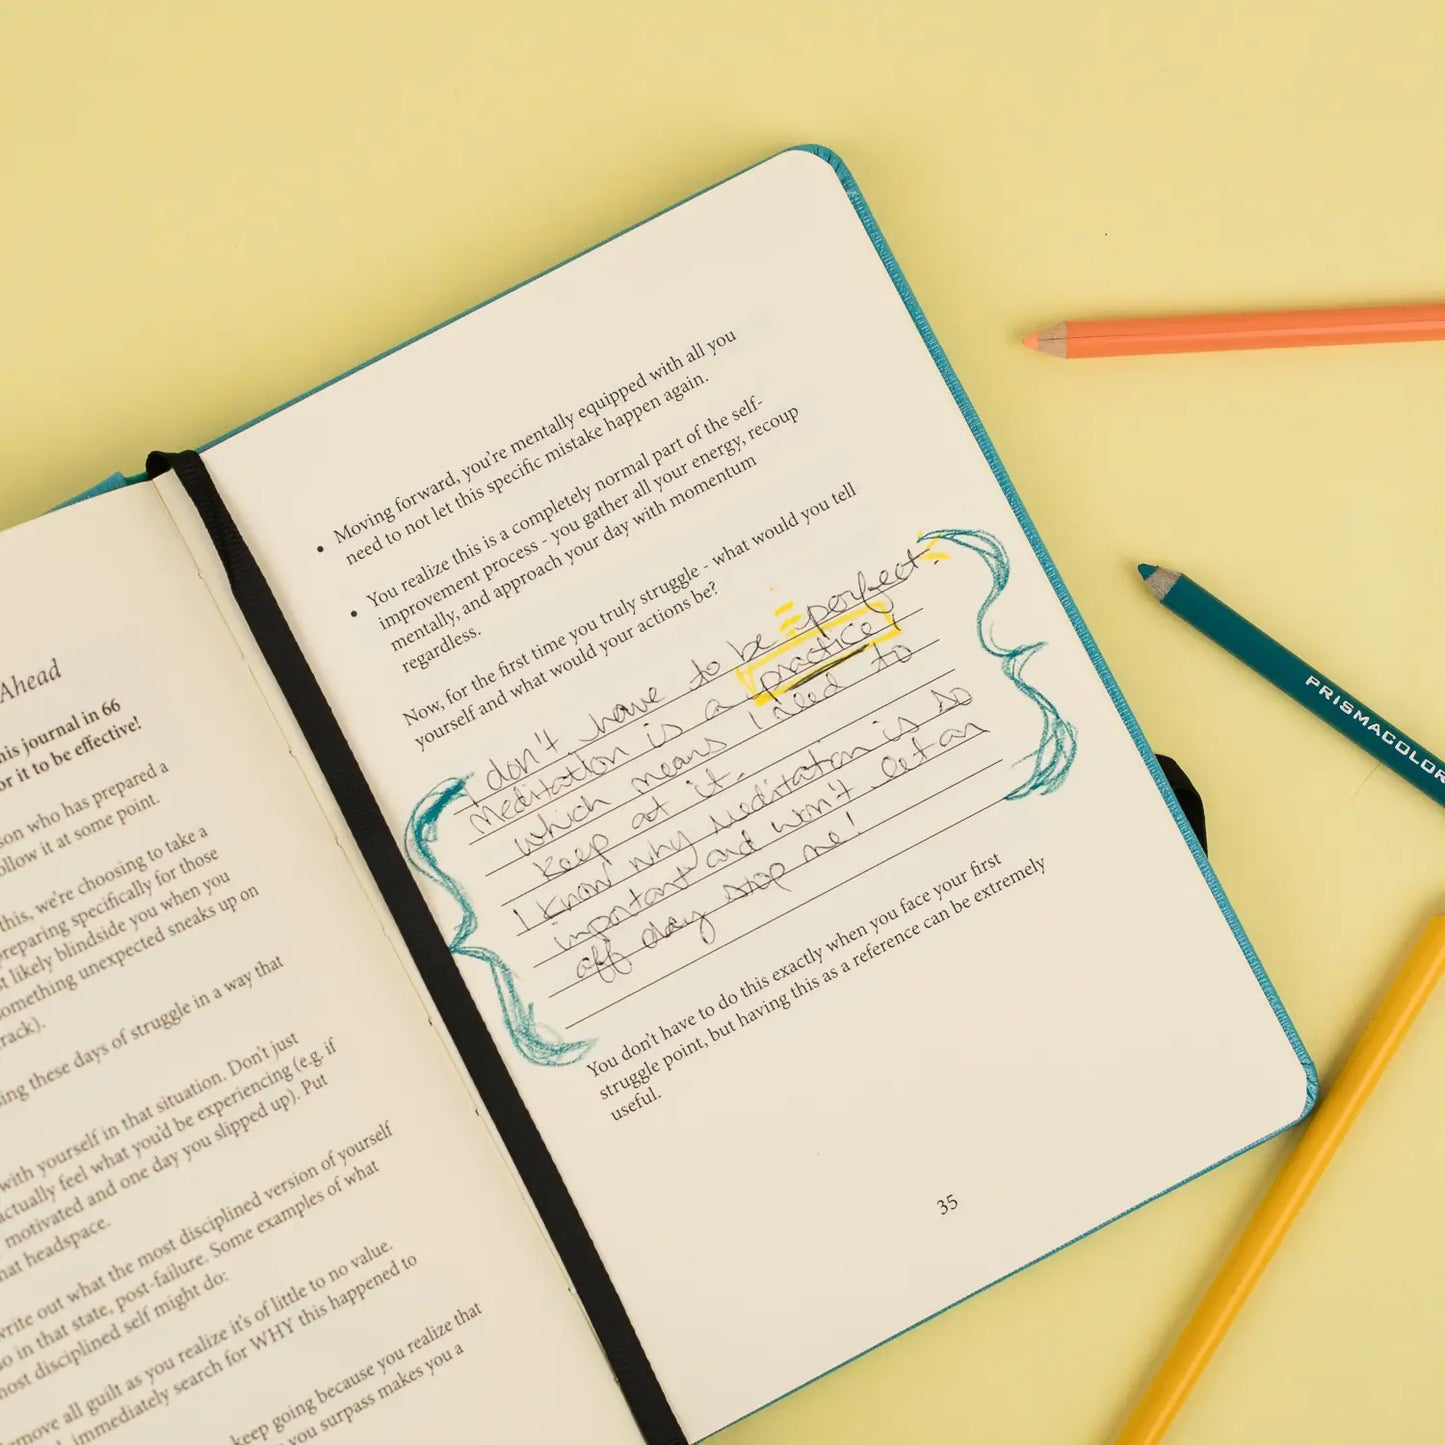 Ahead
his journal in 66
or it to be effective!
son who has prepared a
ollow it at some point.
this, we're choosing to take a
preparing specifically for those
st likely blindside you when you
something unexpected sneaks up on
rack).
ing these days of struggle in a way that
with yourself in that situation. Don't just
actually feel what you'd be experiencing (e.g. if
motivated and one day you slipped up). Put
hat headspace.
write out what the most disciplined version of yourself
o in that state, post-failure. Some examples of what
most disciplined self might do:
move all guilt as you realize it's of little to no value.
immediately search for WHY this happened to
keep going because you realize that
you surpass makes you a
• Moving forward, you're mentally equipped with all you
need to not let this specific mistake happen again.
• You realize this is a completely normal part of the self-
improvement process - you gather all your energy, recoup
mentally, and approach your day with momentum
regardless.
Now, for the first time you truly struggle - what would you tell
yourself and what would your actions be?
I don't have to be perfect.
Meditation is a practice!
which means I need to
keep at it.
I know why meditation is so
important and won't let an
off day stop me!
You don't have to do this exactly when you face your first
struggle point, but having this as a reference can be extremely
useful.
35
PRISMACOLOR